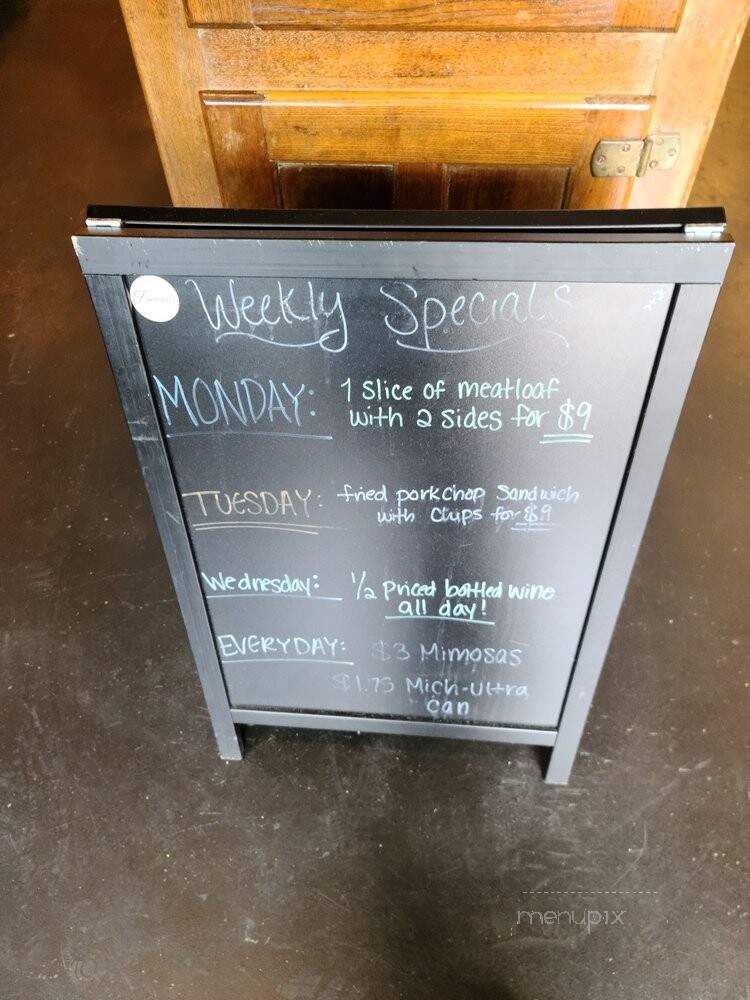 Weekly Specials
MONDAY: 1 slice of meatloaf
with 2 sides for $9
TUESDAY: fried porkchop Sandwich
with Chips for $9
Wednesday: 1/2 priced bottled wine
all day!
EVERYDAY: $3 Mimosas
$1.75 Mich-Ultra
can
menupix